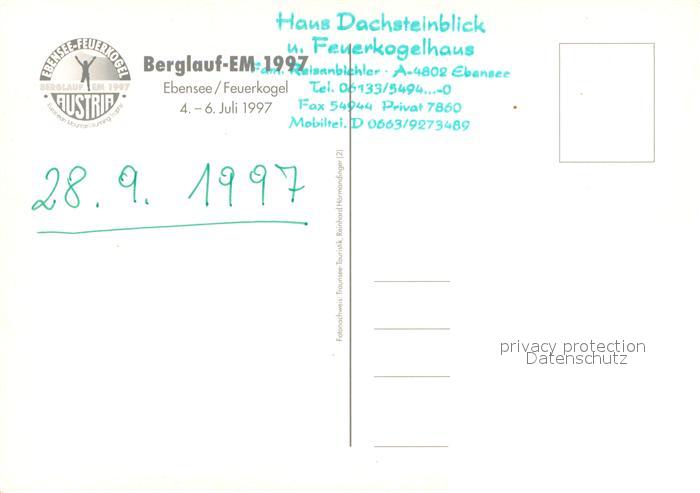 EBENSEE-FEUERKOGEL
BERGLAUF EM 1997
AUSTRIA
Berglauf-EM 1997
Ebensee/Feuerkogel
4. – 6. Juli 1997
Haus Dachsteinblick
u. Feuerkogelhaus
Fam. Reisenbichler · A-4802 Ebensee
Tel. 06133/5494...-0
Fax 54944 Privat 7860
Mobiltel. D 0663/9273489
28. 9. 1997
Fotonachweis: Traunsee-Touristik, Reinhard Hörmandinger (2)
privacy protection
Datenschutz